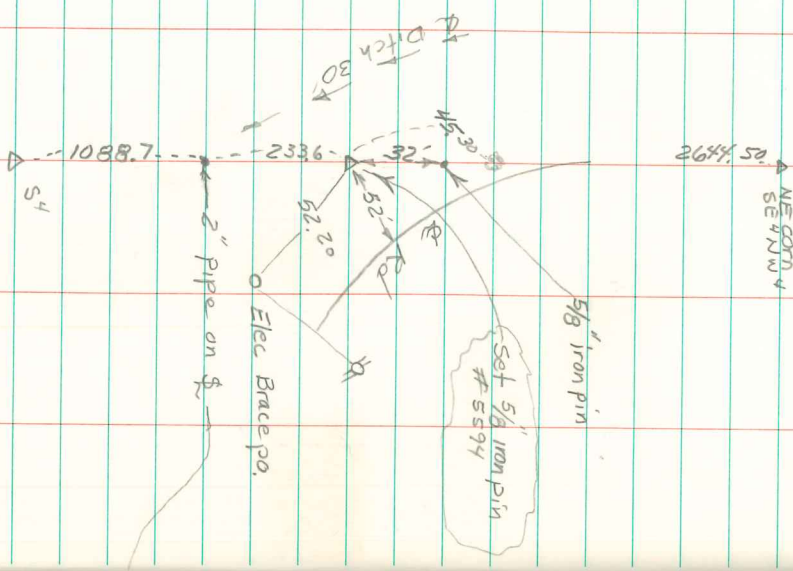 ℄
Ditch
30
1088.7
233.6
32'
45.30
2644.50
NE Corn
SE4NW4
S4
52.20
52'
℄
Rd
2" Pipe on ℄
Elec Brace po.
5/8" iron pin
Set 5/8" iron pin
# 5594